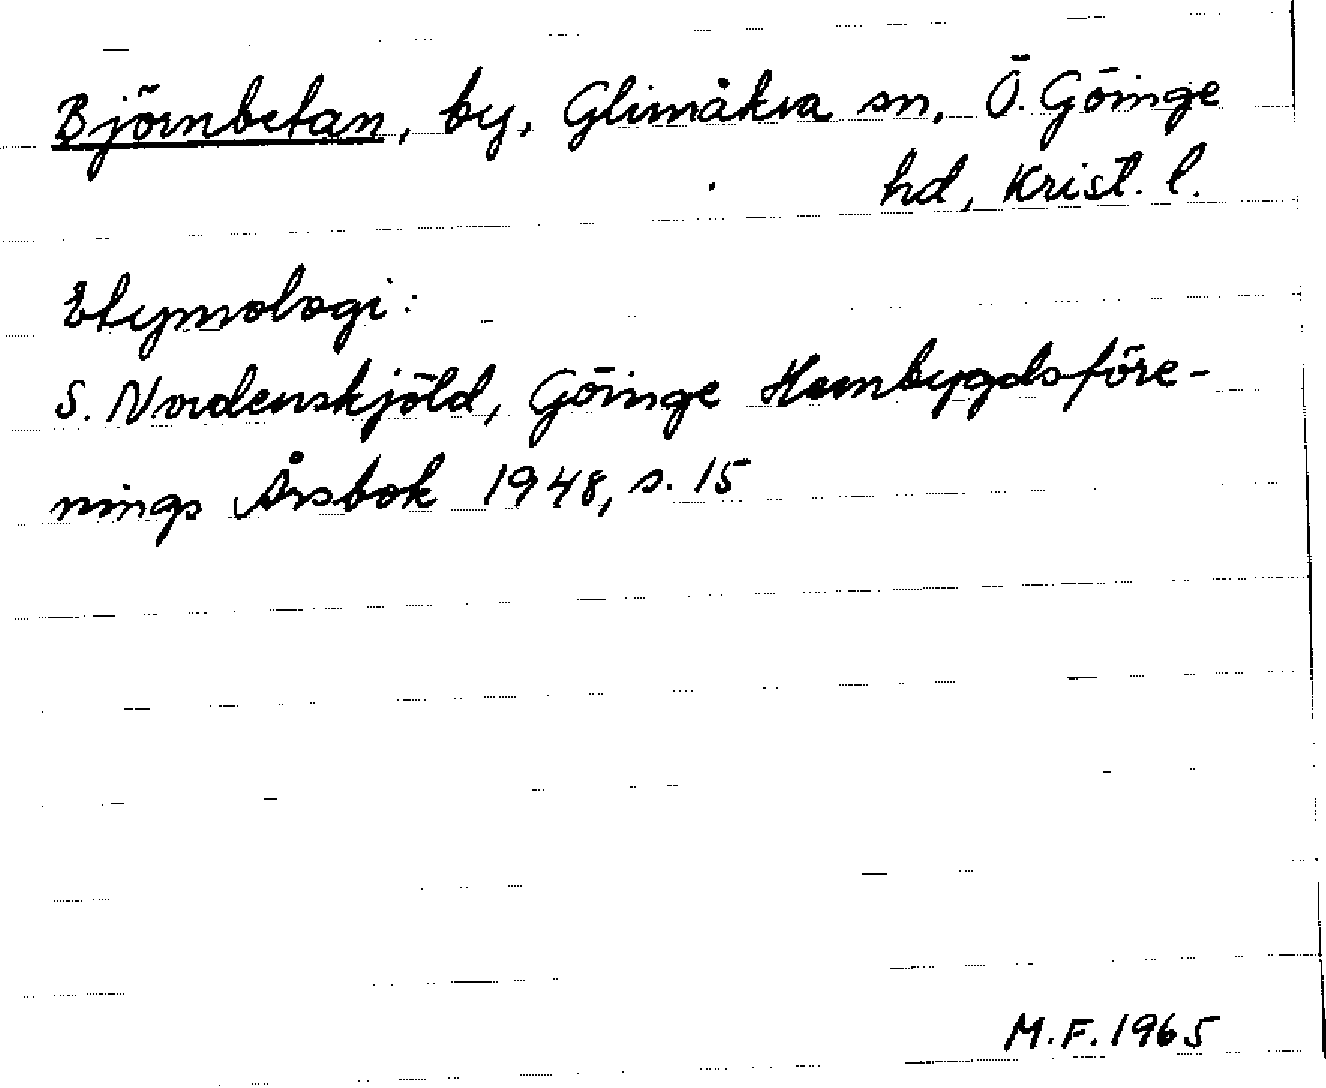 Björnbetan, by, Glimåkra sn, Ö. Göinge
hd, Krist. l.
Etymologi:
S. Nordenskjöld, Göinge Hembygdsföre-
nings Årsbok 1948, s. 15
M.F. 1965